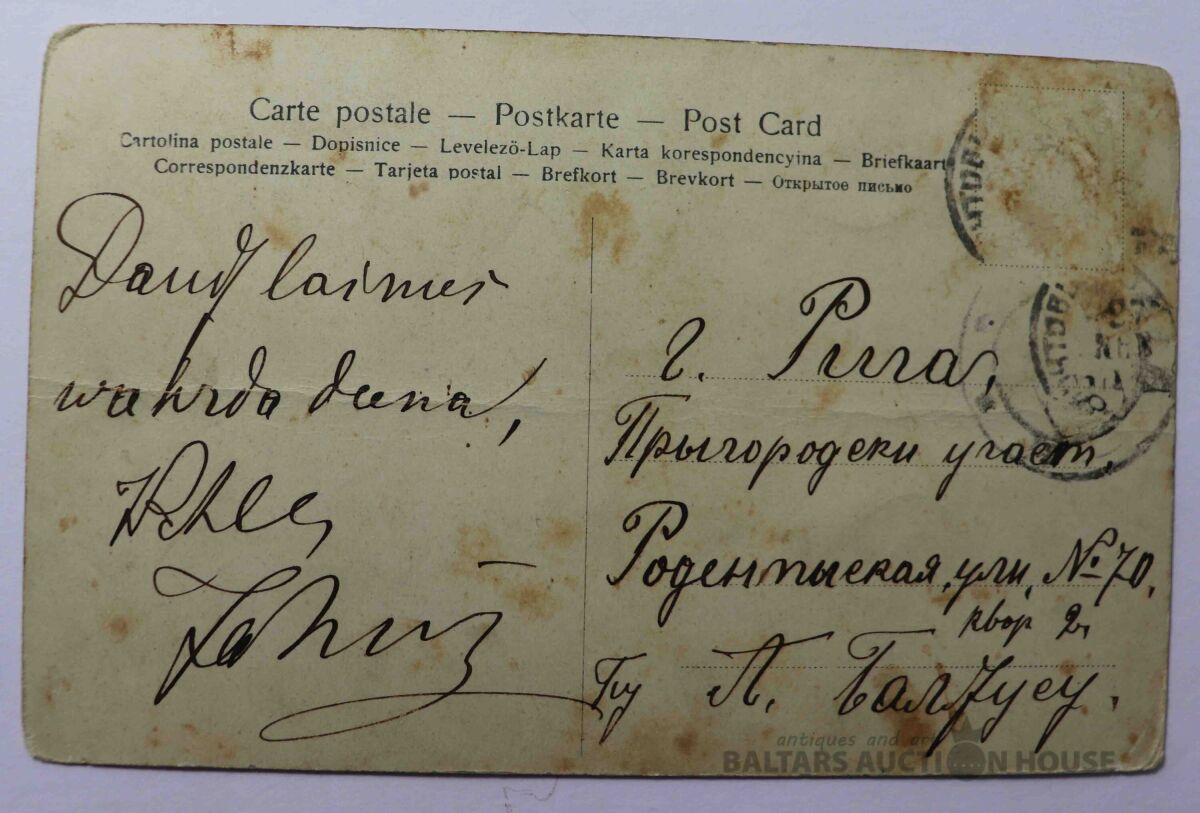 Carte postale — Postkarte — Post Card
Cartolina postale — Dopisnice — Levelező-Lap — Karta korespondencyina — Briefkaart
Correspondenzkarte — Tarjeta postal — Brefkort — Brevkort — Открытое письмо
Daudz laimes
wahrda deena,
г. Рига,
Прыгородски участ.
Роденпыская ули. № 70.
квар 2,
Гну Л. Балтусу.
antiques and art
BALTARS AUCTION HOUSE